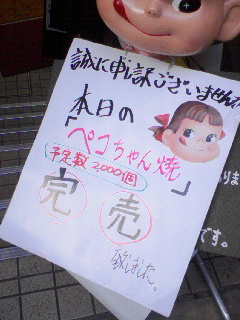 誠に申し訳ございませんが
本日の
「ペコちゃん焼」
予定数2,000個
完売
致しました。
です。